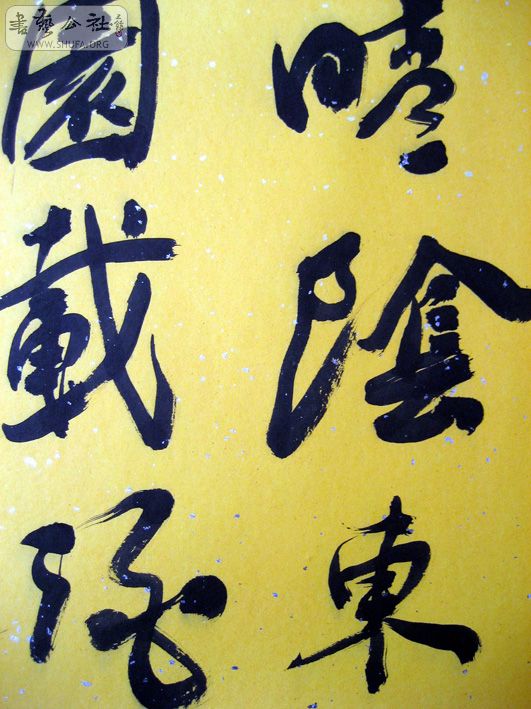 書藝公社
WWW.SHUFA.ORG
晴陰東
園載酒